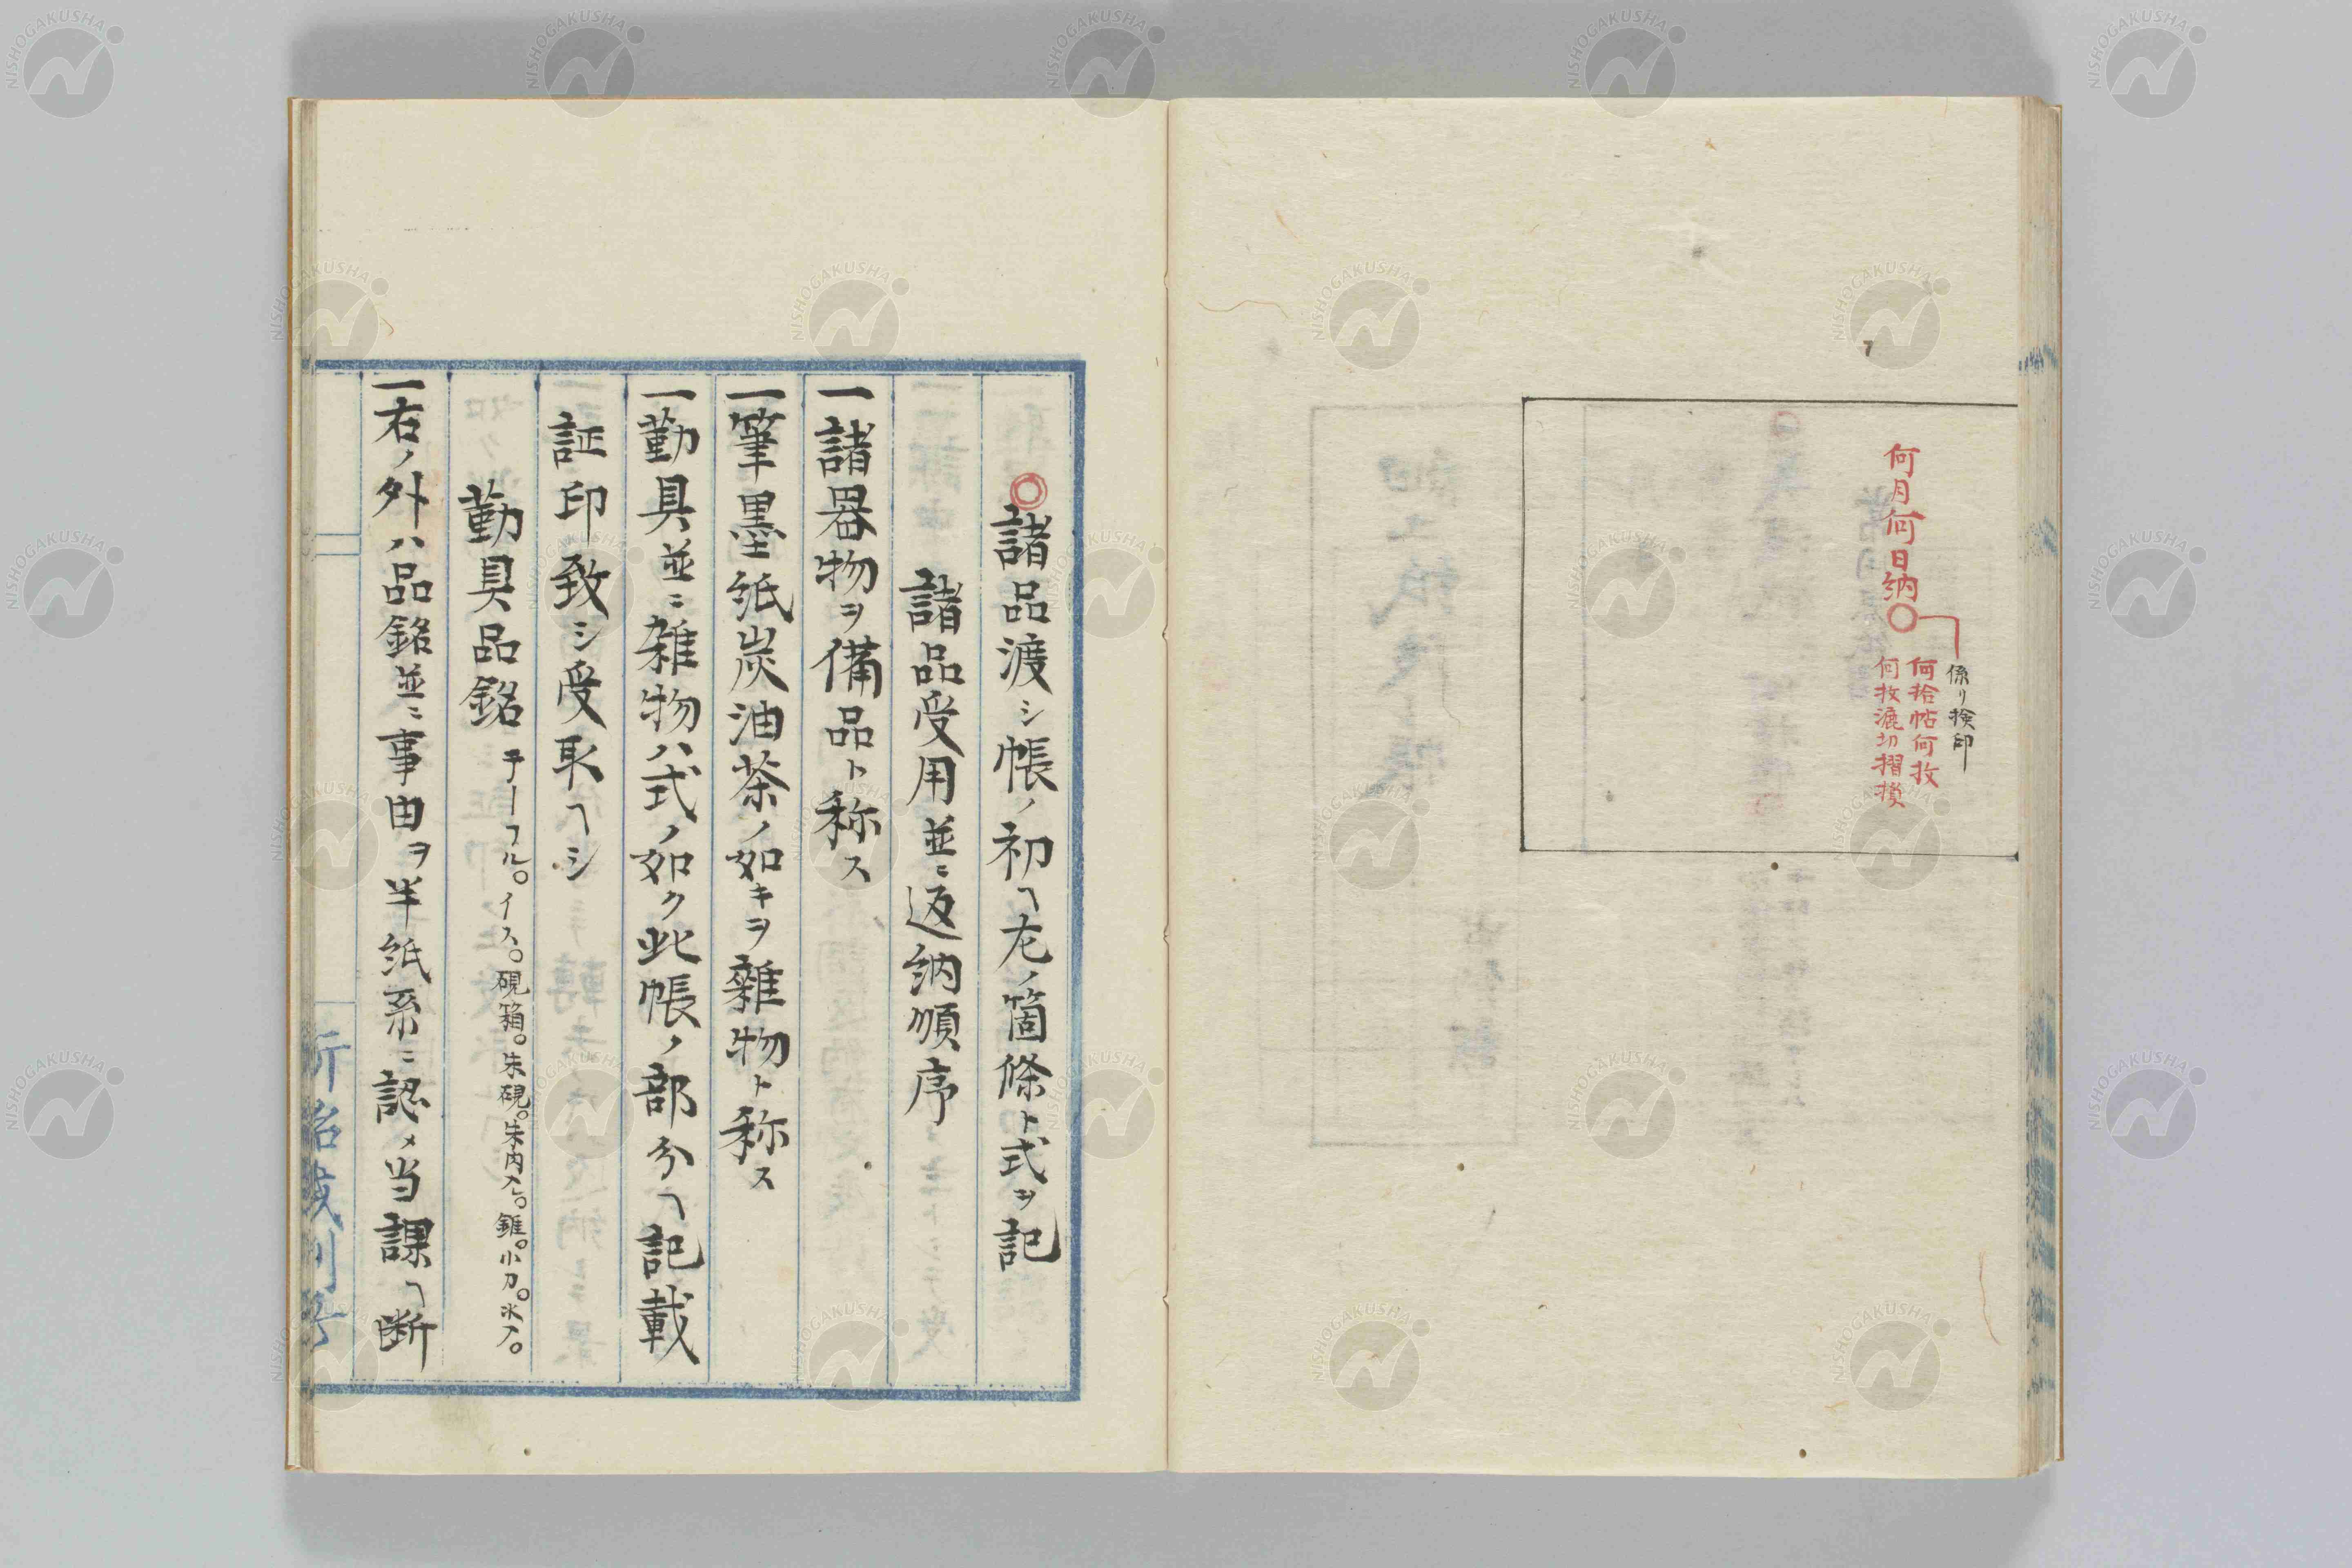 何月何日納〇
係リ検印
何拾帖何枚
何枚漉切摺損
◎諸品渡シ帳ノ初ヘ左ノ箇條ト式ヲ記
諸品受用並ニ返納順序
一諸器物ヲ備品ト称ス
一筆墨紙炭油茶ノ如キヲ雜物ト称ス
一勤具並ニ雑物ハ式ノ如ク此帳ノ部分ヘ記載
証印致シ受取ヘシ
勤具品銘 テーフル。イス。硯箱。朱硯。朱肉入。錐。小刀。水入。
一右ノ外ハ品銘並ニ事由ヲ半紙系ニ認メ当課ヘ断
NISHOGAKUSHA